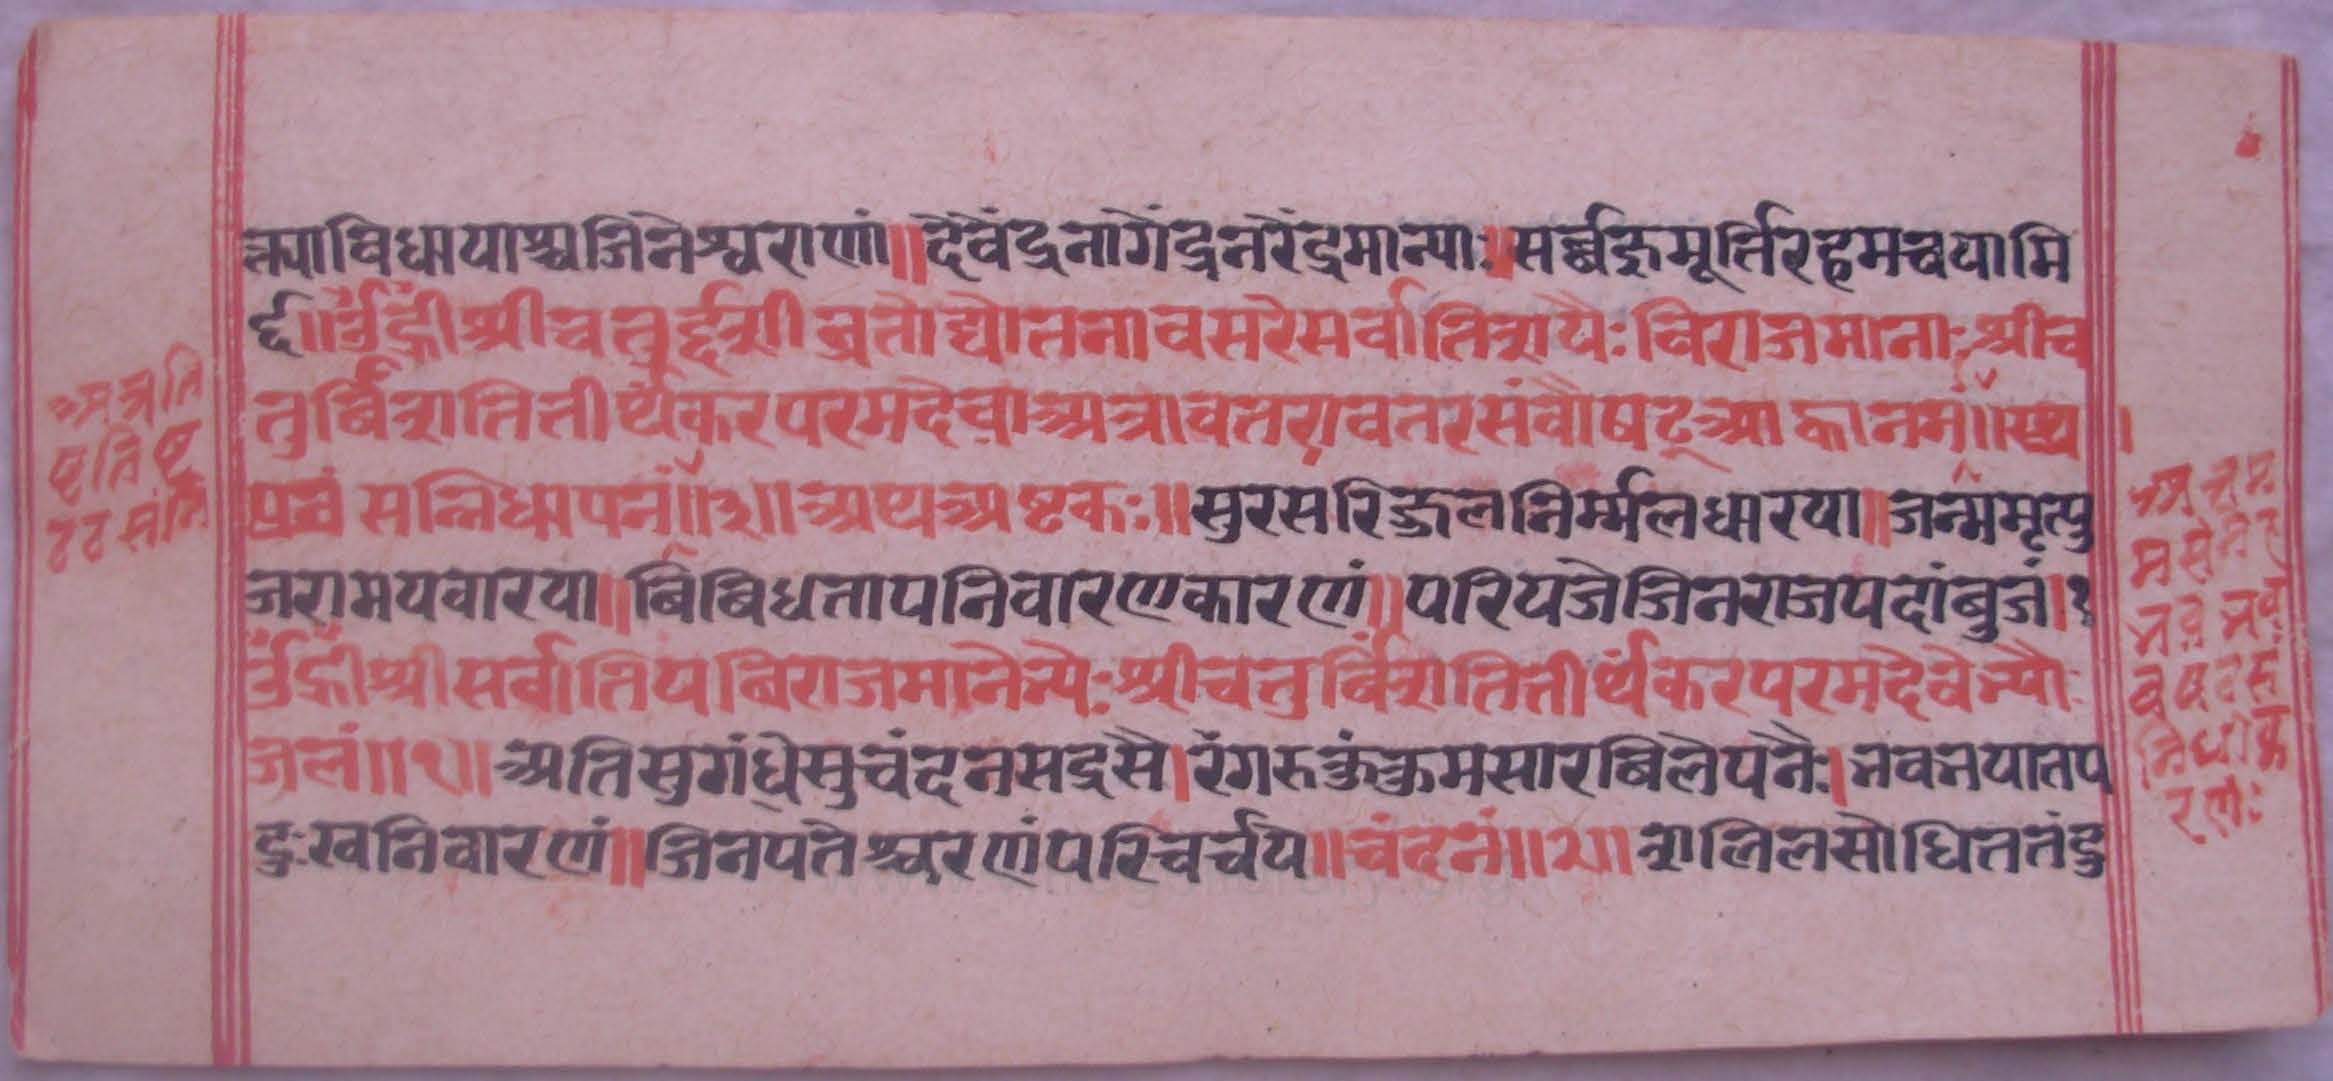 त्क्याविधायाश्चजिनेश्वराणां॥देवेंद्रनागेंद्रनरेंद्रमान्याः॥सर्ब्बद्रुमूर्त्तिरहमर्च्चयामि
र्द्द॥उँह्रीँश्रीचतुर्द्दशीव्रतोद्योतनावसरेसर्वातिशयैःबिराजमानाःश्रीच
तुर्बिंशतितीर्थंकरपरमदेवाअत्रावतरावतरसंवौषट्आह्वानमं॥
सन्निधापनं॥३॥अथअष्टकः॥सुरसरिज्जलनिर्म्मलधारया॥जन्ममृत्यु
जरामयवारया॥बिबिधतापनिवारणकारणं॥परियजेजिनराजपदांबुजं।१
उँह्रीँश्रीसर्वातियबिराजमानेन्यैःश्रीचतुर्बिंशतितीर्थंकरपरमदेवेन्यौः
जलं॥१॥अतिसुगंधेसुचंदनसद्रसै।रंगरुकुंकुमसारबिलेपनैः।नवनयातप
दुःखनिवारणं॥जिनपतेश्चरणंपरिचर्चय॥चंदनं॥२॥शालिलसोधिततंदु
अत्रति
ष्टतिष्ट
ठठ